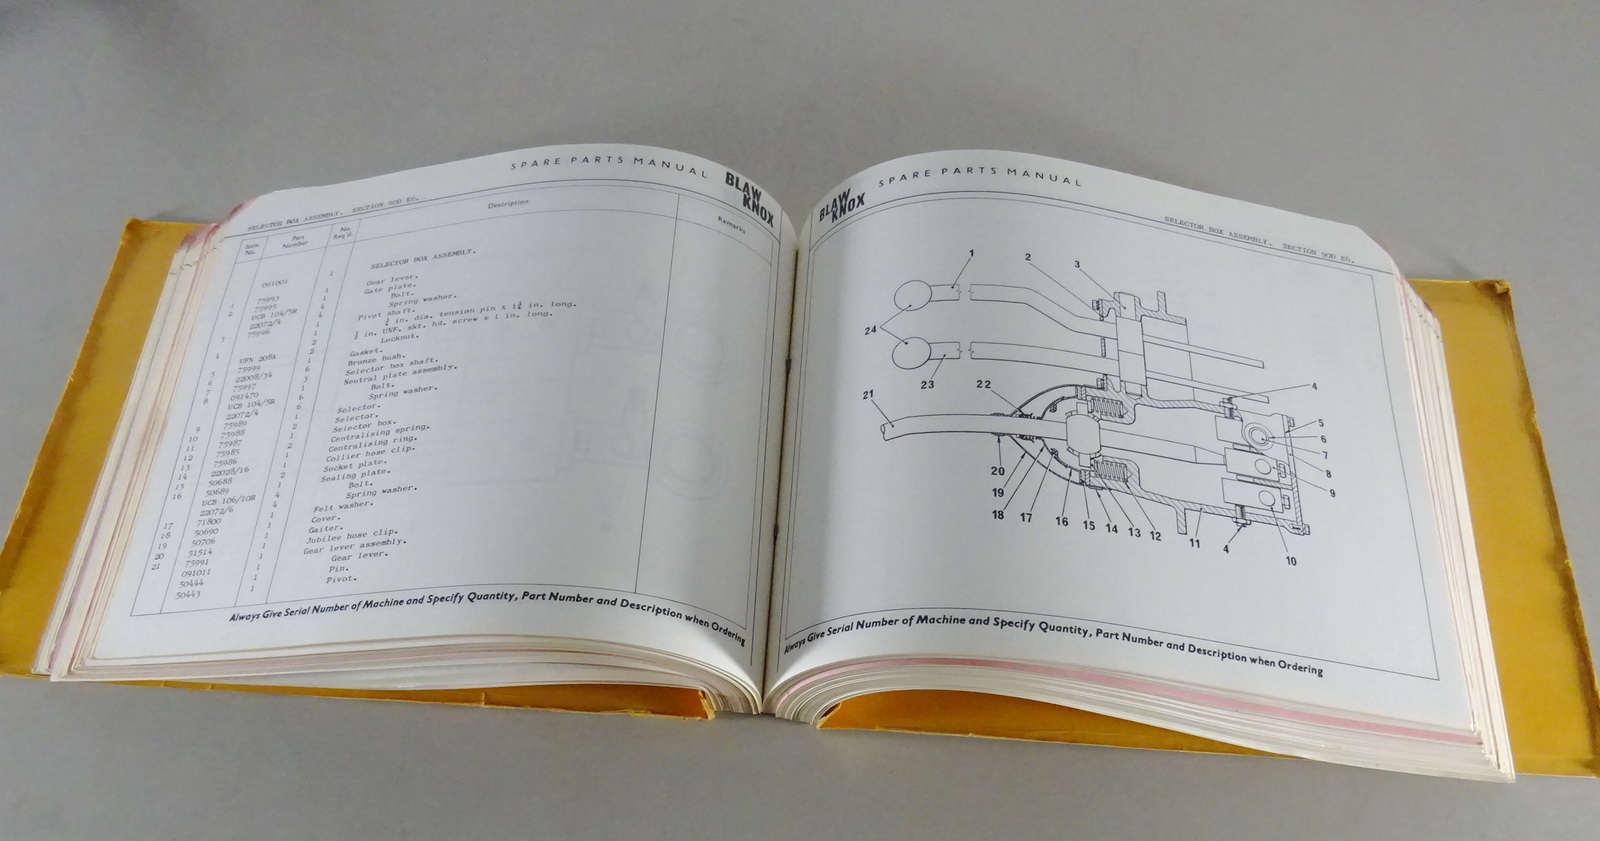 SPARE PARTS MANUAL
BLAW
KNOX
SELECTOR BOX ASSEMBLY. SECTION 90D E6.
Item No.
Part Number
No. Req'd.
Description
Remarks
SELECTOR BOX ASSEMBLY.
091001 1
Gear lever.
1 75993 1 Gate plate.
2 75995 1 Bolt.
UCB 104/5R 4 Spring washer.
22072/4 4 Pivot shaft.
3 75996 1 ¼ in. dia. tension pin x 1¼ in. long.
¼ in. UNF. skt. hd. screw x 1 in. long.
Locknut.
4
UFN 208A 2 Gasket.
5 75999 1 Bronze bush.
6 22008/34 6 Selector box shaft.
7 75997 3 Neutral plate assembly.
8 091470 1 Bolt.
UCB 104/5R 6 Spring washer.
22072/4 6 Selector.
9 75989 1 Selector.
10 75988 2 Selector box.
11 75987 1 Centralising spring.
12 75985 2 Centralising ring.
13 75986 1 Collier hose clip.
14 22028/16 1 Socket plate.
15 50688 2 Sealing plate.
16 50689 1 Bolt.
UCB 106/10R 4 Spring washer.
22072/6 4 Felt washer.
17 71800 1 Cover.
18 50690 1 Gaiter.
19 50706 1 Jubilee hose clip.
20 51514 1 Gear lever assembly.
21 75991 1 Gear lever.
091011 1 Pin.
50444 1 Pivot.
50443 1
Always Give Serial Number of Machine and Specify Quantity, Part Number and Description when Ordering
BLAW
KNOX
SPARE PARTS MANUAL
SELECTOR BOX ASSEMBLY. SECTION 90D E6.
1
2
3
24
23
22
21
4
5
6
7
8
9
20
19
18
17
16
15
14
13
12
11
4
10
Always Give Serial Number of Machine and Specify Quantity, Part Number and Description when Ordering